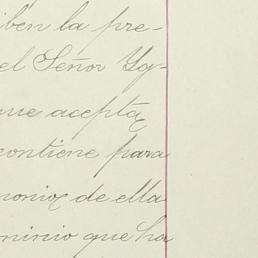 iben la pre-
el Señor Yg-
que acepta
contiene para
monios de ella
minio que ha